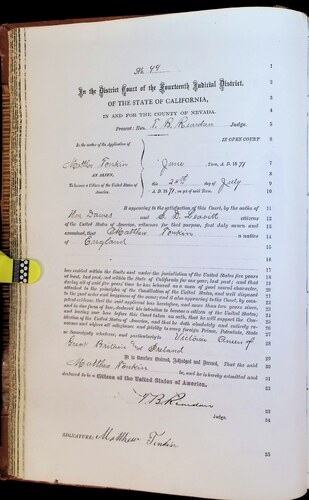 No. 44
In the District Court of the Fourteenth Judicial District.
OF THE STATE OF CALIFORNIA,
IN AND FOR THE COUNTY OF NEVADA.
Present: Hon. T. B. Reardan Judge.
In the matter of the Application of
IN OPEN COURT
Matthew Tonkin
June Term, A. D. 1871
AN ALIEN,
To become a Citizen of the United States of America.
this day of July
A. D. 1871
It appearing to the satisfaction of this Court, by the oaths of
Wm Dawes and S. D. Leavitt citizens
of the United States of America, witnesses for that purpose, first duly sworn and
examined, that Matthew Tonkin a native
of England
has resided within the limits and under the jurisdiction of the United States five years
at least, last past, and within the State of California for one year, last past; and that
during all of said five years' time he has behaved as a man of good moral character,
attached to the principles of the Constitution of the United States, and well disposed
to the good order and happiness of the same; and it also appearing to the Court, by com-
petent evidence, that the said applicant has heretofore, and more than two years since,
and in due form of law, declared his intention to become a citizen of the United States,
and having now here before this Court taken an oath, that he will support the Con-
stitution of the United States of America, and that he doth absolutely and entirely re-
nounce and abjure all allegiance and fidelity to every foreign Prince, Potentate, State
or Sovereignty whatever, and particularly to Victoria Queen of
Great Britain and Ireland
It is therefore Ordered, Adjudged and Decreed, That the said
Matthew Tonkin be, and he is hereby admitted and
declared to be a Citizen of the United States of America.
T. B. Reardan
Judge.
SIGNATURE: Matthew Tonkin
1
2
3
4
5
6
7
8
9
10
11
12
13
14
15
16
17
18
19
20
21
22
23
24
25
26
27
28
29
30
31
32
33
34
35